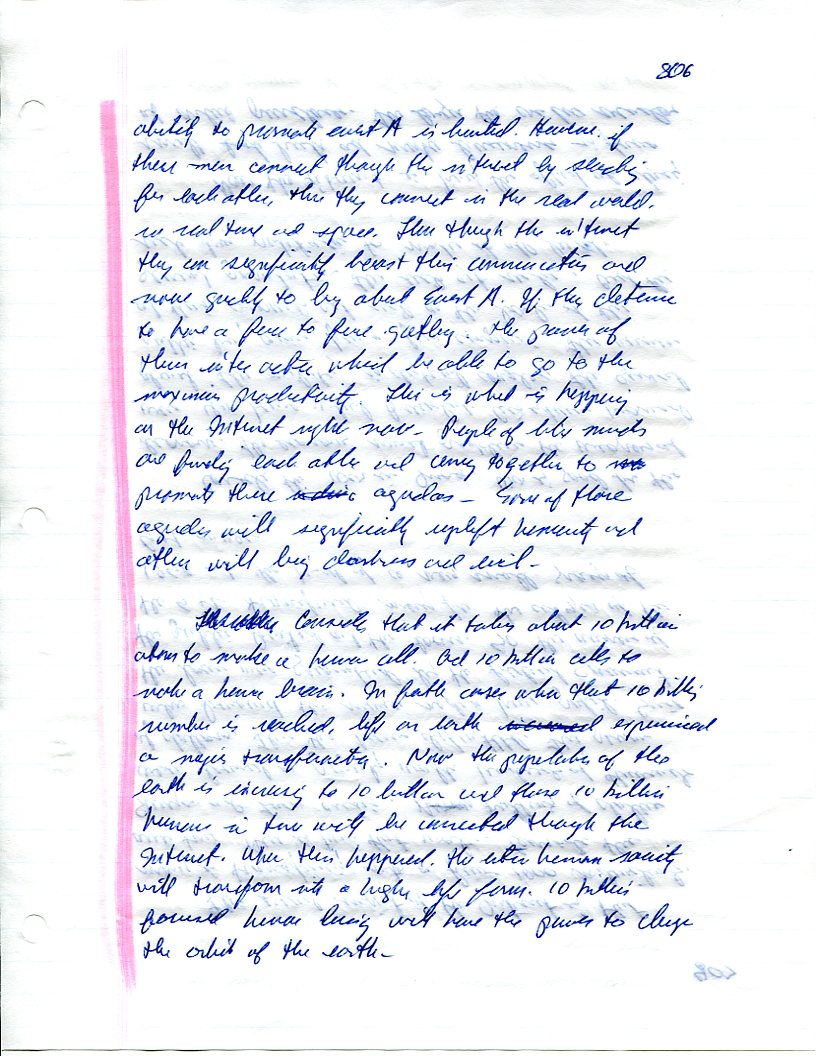 806
ability to promote event A is limited. However if
these men connect though the internet by seaching
for each other, then they connect in the real world.
in real time and space. Then though the internet
they can significantly boost this communication and
move quickly to bring about Event A. If they determine
to have a face to face gathering. the power of
their interaction will be able to go to the
maximum productivity. This is what is happening
on the Internet right now - People of like minds
are finding each other and coming together to
promote there agendas - Some of those
agendas will significantly uplift humanity and
others will bring darkness and evil -
Consider that it takes about 10 billion
atoms to make a human cell. And 10 billion cells to
make a human brain. In both cases when that 10 billion
number is reached, life on earth experienced
a major transformation. Now the population of the
earth is increasing to 10 billion and those 10 billion
humans in time will be connected though the
Internet. When this happened. the entire human society
will transform into a higher life form. 10 billion
focused human beings will have the power to change
the orbit of the earth -